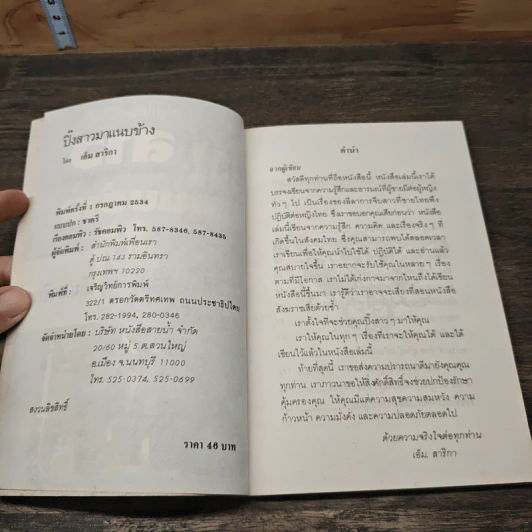 ปิ๊งสาวมาแนบข้าง
โดย เอ็ม สาริกา
พิมพ์ครั้งที่ 1 กรกฎาคม 2534
แบบปก : ชาตรี
เรียงคอมพิว : รัชคอมพิว โทร. 587-8346, 587-8435
ผู้จัดพิมพ์ : สำนักพิมพ์เพื่อนเรา
ตู้ ปณ. 143 รามอินทรา
กรุงเทพฯ 10220
พิมพ์ที่ : เจริญวิทย์การพิมพ์
322/1 ตรอกวัดตรีทศเทพ ถนนประชาธิปไตย
โทร. 282-1994, 280-0346
จัดจำหน่ายโดย : บริษัท หนังสือสายน้ำ จำกัด
20/60 หมู่ 5 ต.สวนใหญ่
อ.เมือง จ.นนทบุรี 11000
โทร. 525-0374, 525-0699
สงวนลิขสิทธิ์
ราคา 46 บาท
คำนำ
จากผู้เขียน
สวัสดีทุกท่านที่ถือหนังสือนี้ หนังสือเล่มนี้เราได้
บรรจงเขียนจากความรู้สึกและอารมณ์ที่ผู้ชายมีต่อผู้หญิง
ทั่ว ๆ ไป เป็นเรื่องของลีลาการจีบสาวที่ชายไทยพึง
ปฏิบัติต่อหญิงไทย ซึ่งเราขอบอกคุณเสียก่อนว่า หนังสือ
เล่มนี้เขียนจากความรู้สึก ความคิด และเรื่องจริง ๆ ที่
เกิดขึ้นในสังคมไทย ซึ่งคุณสามารถพบได้ตลอดเวลา
เราเขียนเพื่อให้คุณนำไปใช้ได้ ปฏิบัติได้ และอ่านแล้ว
คุณสบายใจขึ้น เราอยากจะรับใช้คุณในหลาย ๆ เรื่อง
ตามที่มีโอกาส เราไม่ได้เก่งกาจมาจากไหนถึงได้เขียน
หนังสือนี้ขึ้นมา เรารู้ดีว่าเราอาจจะเสี่ยงที่สอนหนังสือ
สังฆราชเสียด้วยซ้ำ
เราตั้งใจที่จะช่วยคุณปิ๊งสาว ๆ มาให้คุณ
เราให้คุณในทุก ๆ เรื่องที่เราจะให้คุณได้ และได้
เขียนไว้แล้วในหนังสือเล่มนี้
ท้ายที่สุดนี้ เราขอส่งความปรารถนาดีมายังคุณคุณ
ทุกท่าน เราภาวนาขอให้สิ่งศักดิ์สิทธิ์จงช่วยปกป้องรักษา
คุ้มครองคุณ ให้คุณมีแต่ความสุขความสมหวัง ความ
ก้าวหน้า ความมั่งคั่ง และความปลอดภัยตลอดไป
ด้วยความจริงใจต่อทุกท่าน
เอ็ม. สาริกา